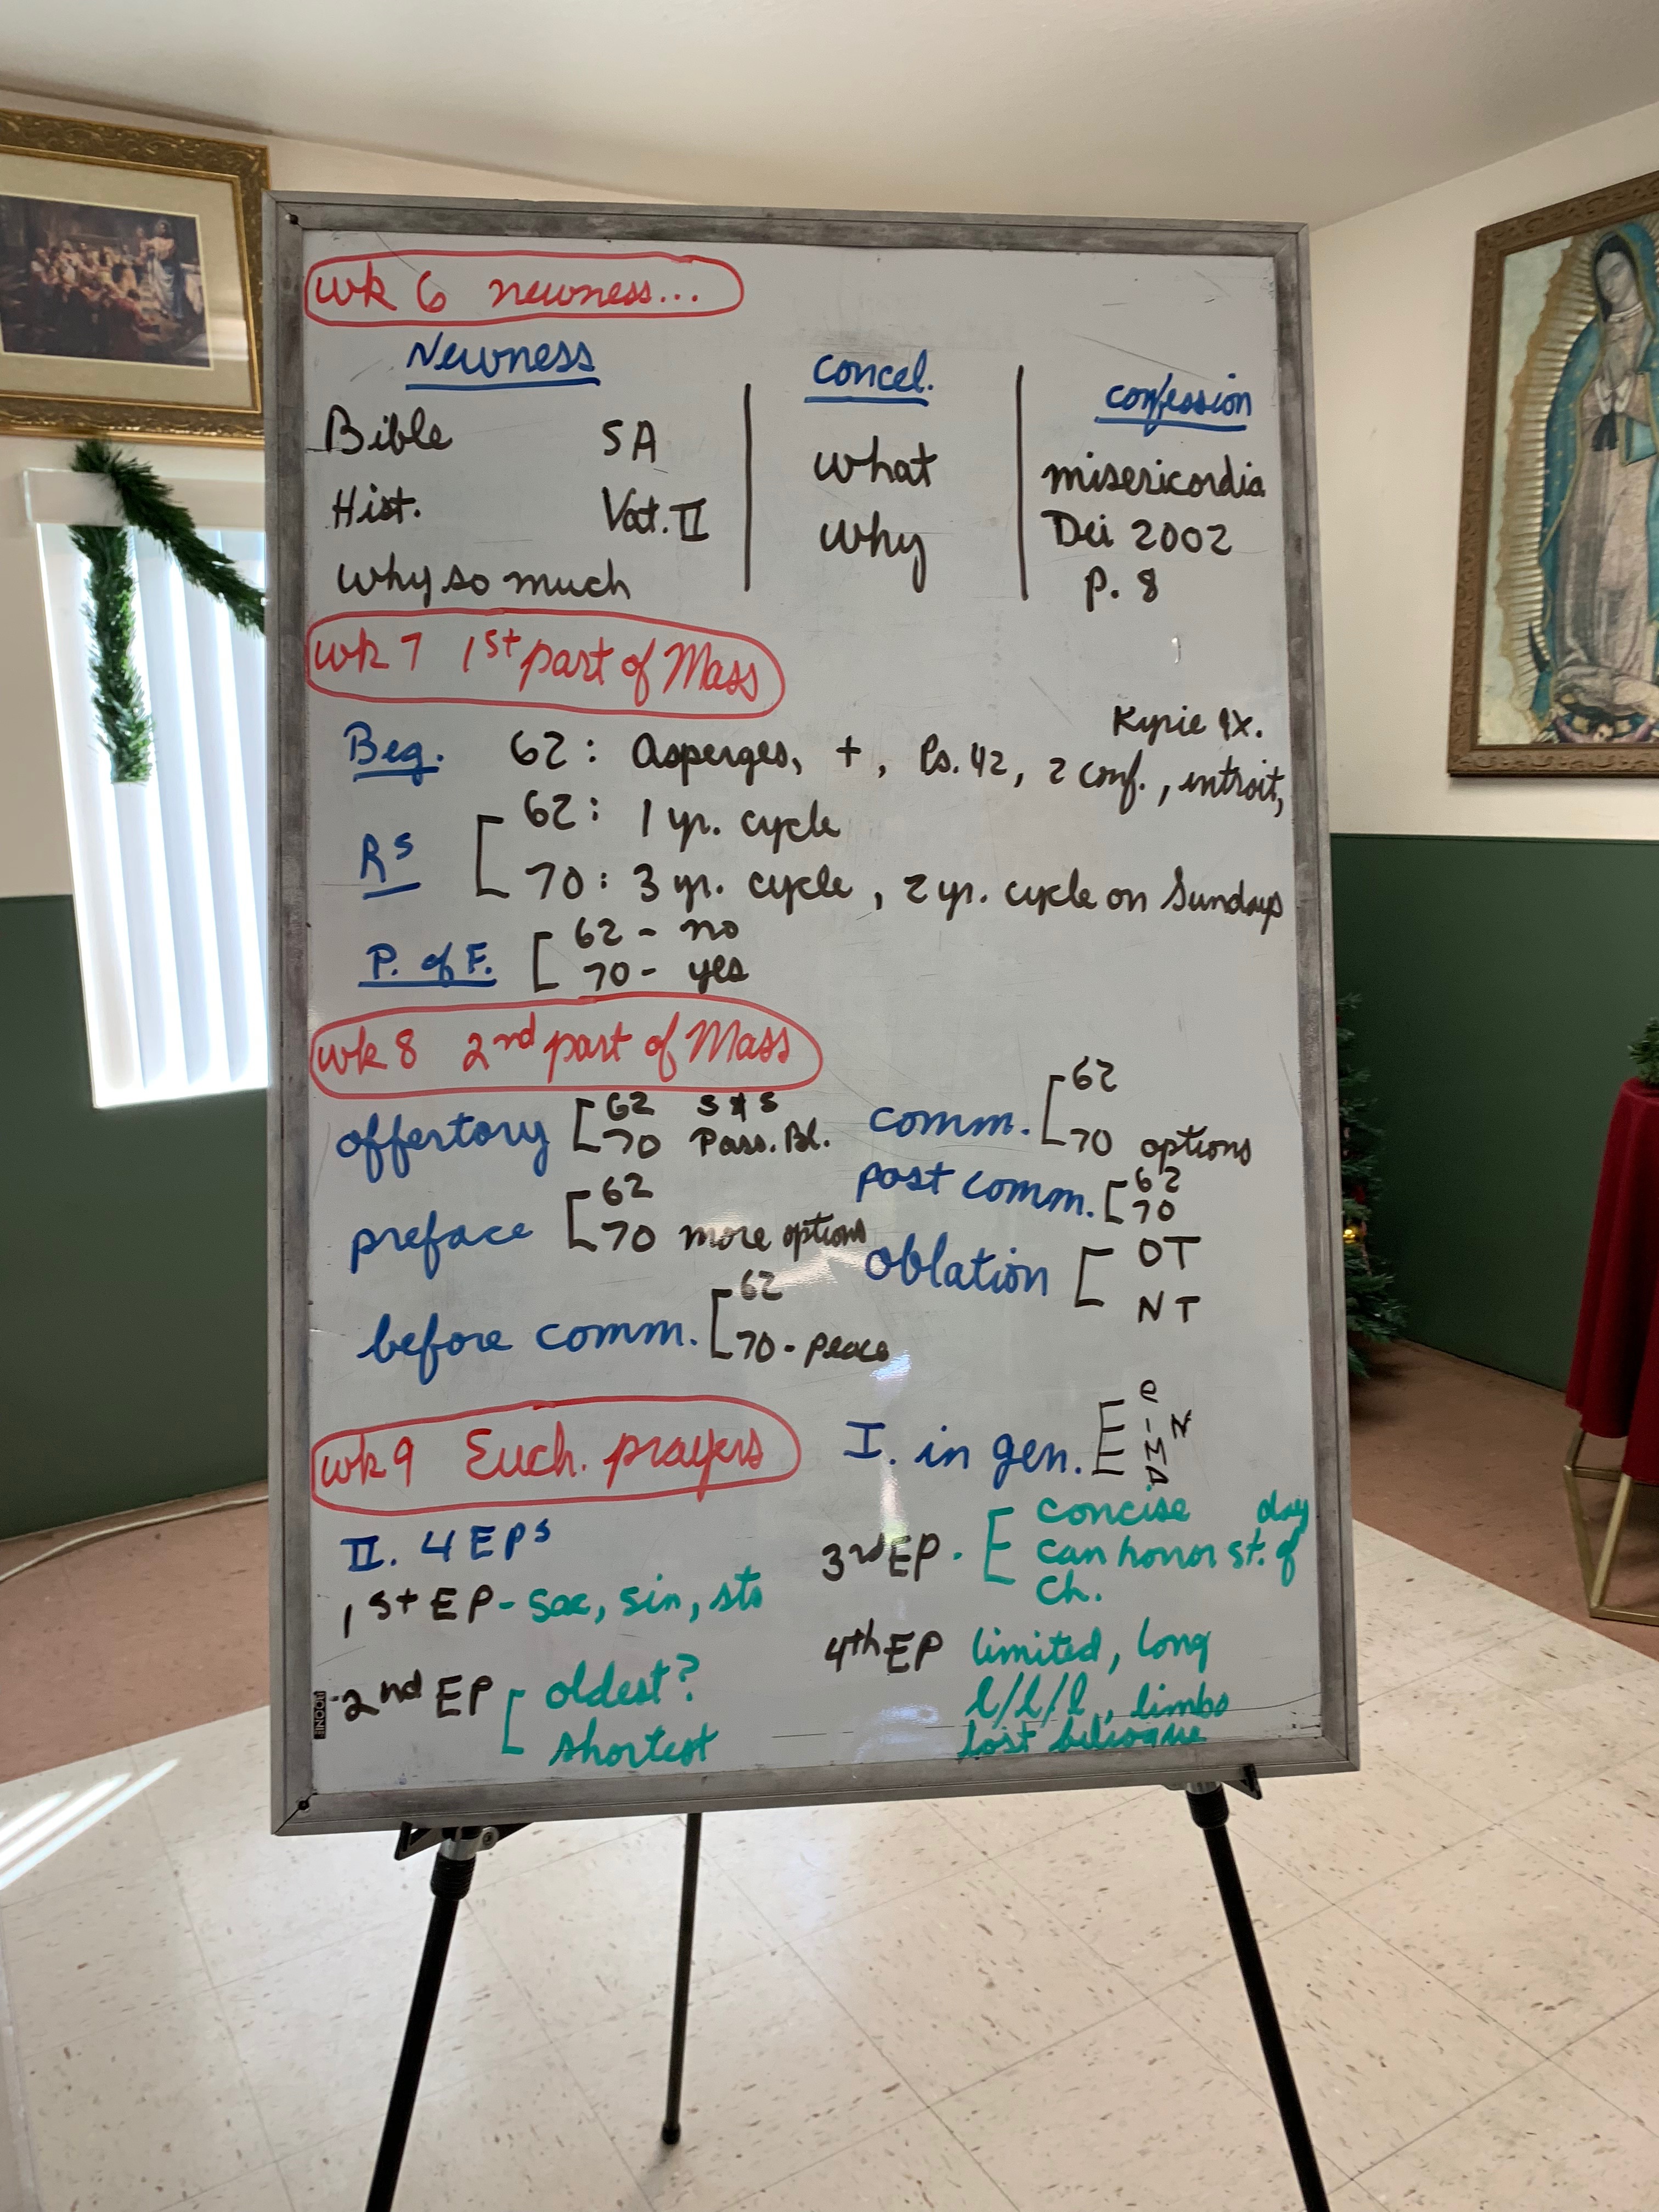 wk 6 newness...
Newness
Concel.
confession
Bible SA
Hist. Vat. II
why so much
what
why
misericordia
Dei 2002
p. 8
wk 7 1st part of Mass
Kyrie 9x.
Beg. 62: Asperges, +, Ps. 42, 2 conf., introit,
Rs
62: 1 yr. cycle
70: 3 yr. cycle, 2 yr. cycle on Sundays
P. of F.
62 - no
70 - yes
wk 8 2nd part of Mass
offertory
62 S & S
70 Pass. Bl.
preface
62
70 more options
before comm.
62
70 - peace
comm.
62
70 options
post comm.
62
70
Oblation
OT
NT
wk 9 Euch. prayers
I. in gen.
e
- N
M
D
II. 4 EPs
1st EP - sac, sin, sts
2nd EP
oldest?
shortest
3rd EP.
concise
can honor st. of day
Ch.
4th EP limited, long
l/l/l, limbo
lost